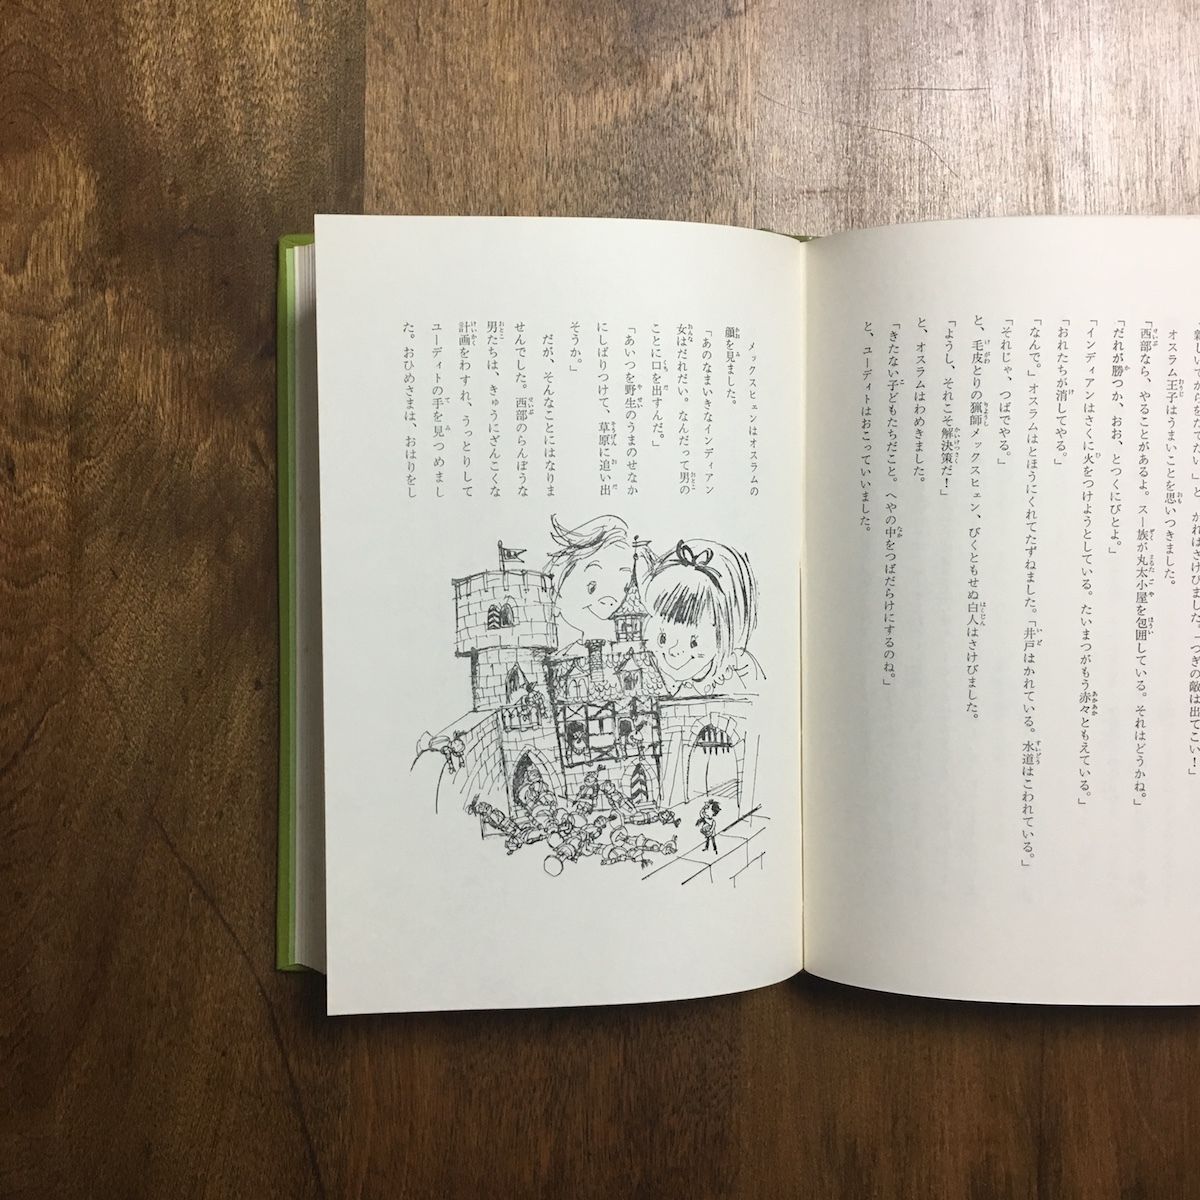 新しいてきがきたぞ
オスラム王子はうまいことを思いつきました。
「西部なら、やることがあるよ。スー族が丸太小屋を包囲している。それはどうかね。」
「だれが勝つか、おお、とつくにびとよ。」
「インディアンはさくに火をつけようとしている。たいまつがもう赤々ともえている。」
「おれたちが消してやる。」
「なんで。」オスラムはとほうにくれてたずねました。「井戸はかれている。水道はこわれている。」
「それじゃ、つばでやる。」
と、毛皮とりの猟師メックスヒェン、びくともせぬ白人はさけびました。
「ようし、それこそ解決策だ！」
と、オスラムはわめきました。
「きたない子どもたちだこと。へやの中をつばだらけにするのね。」
と、ユーディトはおこっていいました。
メックスヒェンはオスラムの
顔を見ました。
「あのなまいきなインディアン
女はだれだい。なんだって男の
ことに口を出すんだ。」
「あいつを野生のうまのせなか
にしばりつけて、草原に追い出
そうか。」
だが、そんなことにはなりま
せんでした。西部のらんぼうな
男たちは、きゅうにざんこくな
計画をわすれ、うっとりして
ユーディトの手を見つめまし
た。おひめさまは、おはりをし